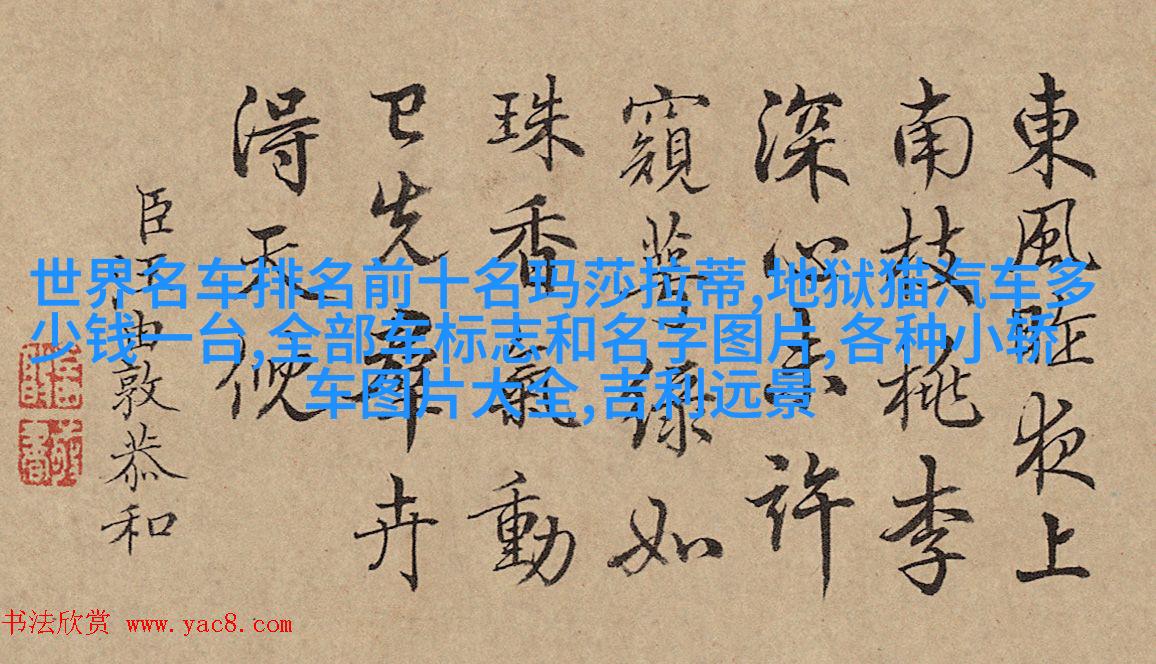 東風昨夜上
南枝桃李
深心未許
窺蕊綠如
珠香氣動
已先羣卉
得天倪
臣汪由敦恭和
世界名车排名前十名玛莎拉蒂,地狱猫汽车多
少钱一台,全部车标志和名字图片,各种小轿
车图片大全,吉利远景
书法欣赏 www.yac8.com